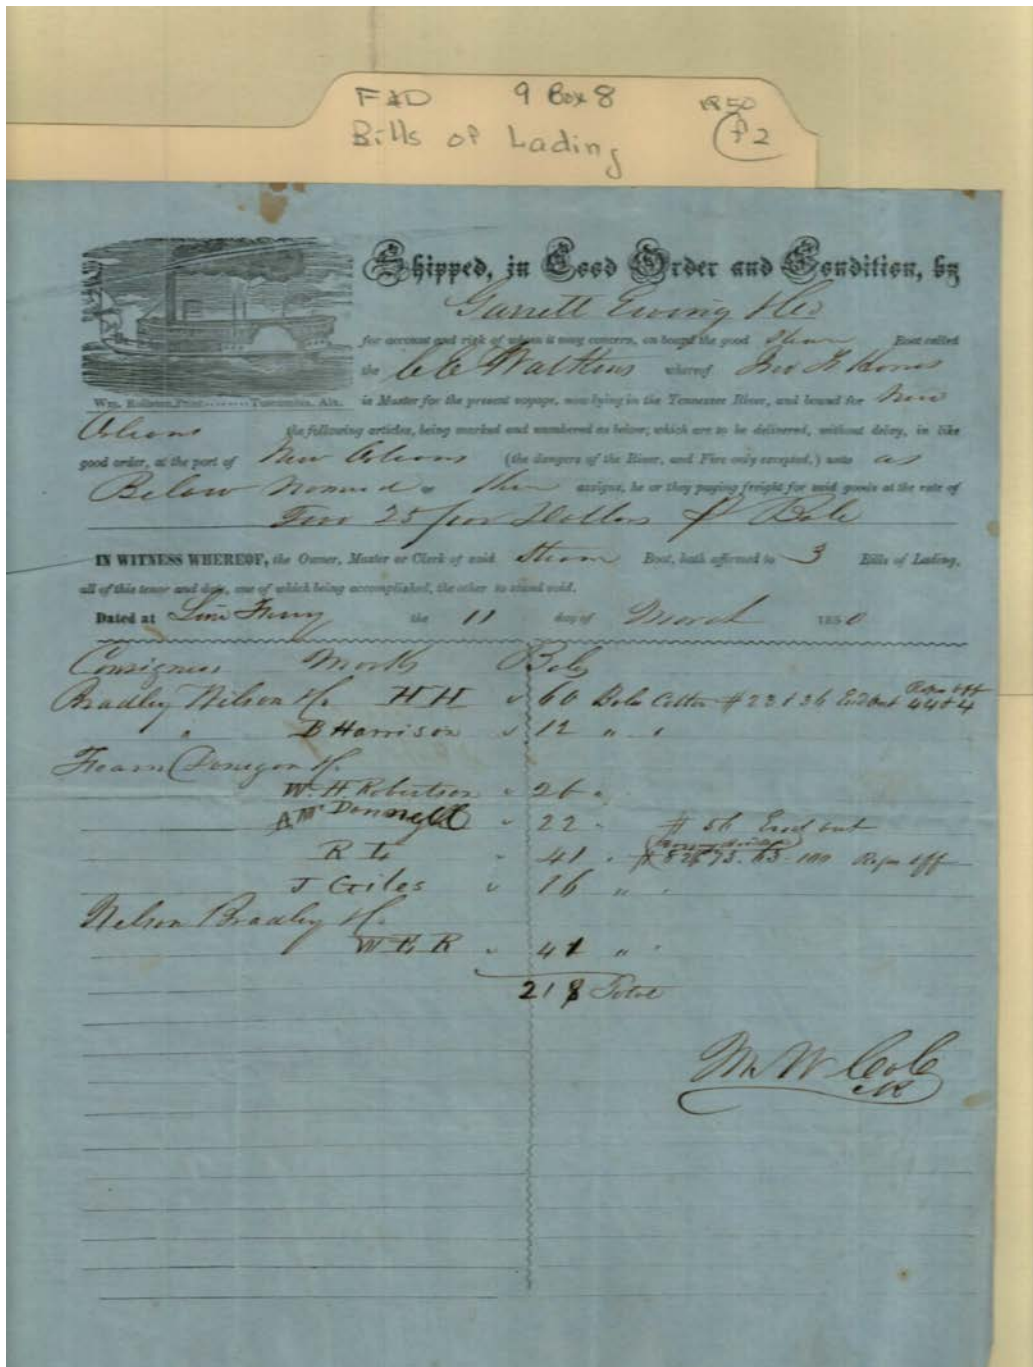 F&D 9 Box 8 1850
Bills of Lading f2
Shipped, in Good Order and Condition, by
Garrett Ewing & Co
for account and risk of whom it may concern, on board the good Steam Boat called
the whereof
Wm. Tuscumbia, Ala. is Master for the present voyage, now lying in the Tennessee River, and bound for New
Orleans the following articles, being marked and numbered as below; which are to be delivered, without delay, in like
good order, at the port of New Orleans (the dangers of the River, and Fire only excepted,) unto as
Below Named or their assigns, he or they paying freight for said goods at the rate of
Two 25/100 Dollars P Bale
IN WITNESS WHEREOF, the Owner, Master or Clerk of said Steam Boat, hath affirmed to 3 Bills of Lading,
all of this tenor and date, one of which being accomplished, the other to stand void.
Dated at Ferry the 11 day of March 1850
Consignees Marks Bales
Bradley Nilson & Co HH " 60 Bales Cotton # 23 & 36 End out Rope off 44 & 4
" B Harrison " 12 " "
Fearn Donegan & Co
W. H Robertson " 26 "
A Mc Donnell " 22 " # 56 End out
R L " 41 " 100 Rope off
J Giles " 16 " "
Nelson Bradley & Co
" 41 " "
218 Total
M W Cole